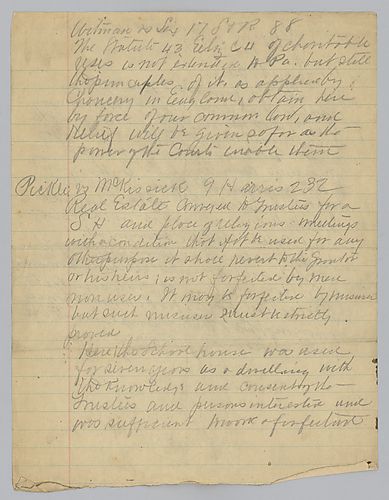 Witman vs Lex 17 S & R 88
The Statute 43 Eliz. C4 of charitable
uses is not extended to Pa. but still
the principles of it, as applied by
Chancery in England, obtain here
by force of our common law, and
relief will be given so far as the
power of the Courts enable them
Pickle vs McKissick 9 Harris 232
Real Estate conveyed to Trustees for a
S H and place of religious meetings
with condition that if it be used for any
other purpose it shall revert to the Grantor
or his heirs; is not forfeited by mere
non user. It may be forfeited by misuser
but such misuser must be strictly
proved
Here the School house was used
for seven years as a dwelling with
the knowledge and consent of the
Trustees and persons interested and
was sufficient to work a forfeiture